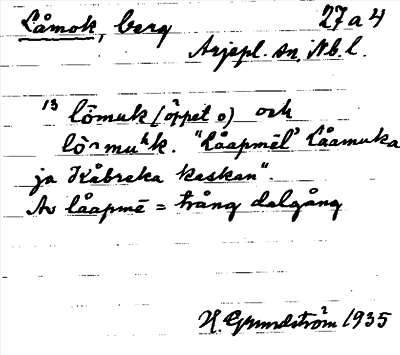 Låmok, berg 27a4
Arjepl. sn, Nb. l.
13 lōmuk (öppet o) och
lō̄muʰk. "Låapmēl' Låamuka
ja Kåbreka kaskan".
Av låapmē = trång dalgång
H. Grundström 1935